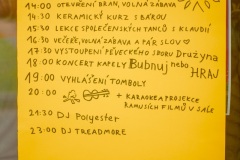 14:00 OTEVŘENÍ BRAN, VOLNÁ ZÁBAVA
14:30 KERAMICKÝ KURZ S BÁROU
15:30 LEKCE SPOLEČENSKÝCH TANCŮ S KLAUDIÍ
16:30 VEČEŘE, VOLNÁ ZÁBAVA A PÁR SLOV
17:30 VYSTOUPENÍ PĚVECKÉHO SBORU Družyna
18:00 KONCERT KAPELY Bubnuj nebo
HRAJ
19:00 VYHLÁŠENÍ TOMBOLY
20:00 + KARAOKE A PROJEKCE
FILMŮ V SÁLE
21:30 DJ Polyester
23:00 DJ TREADMORE